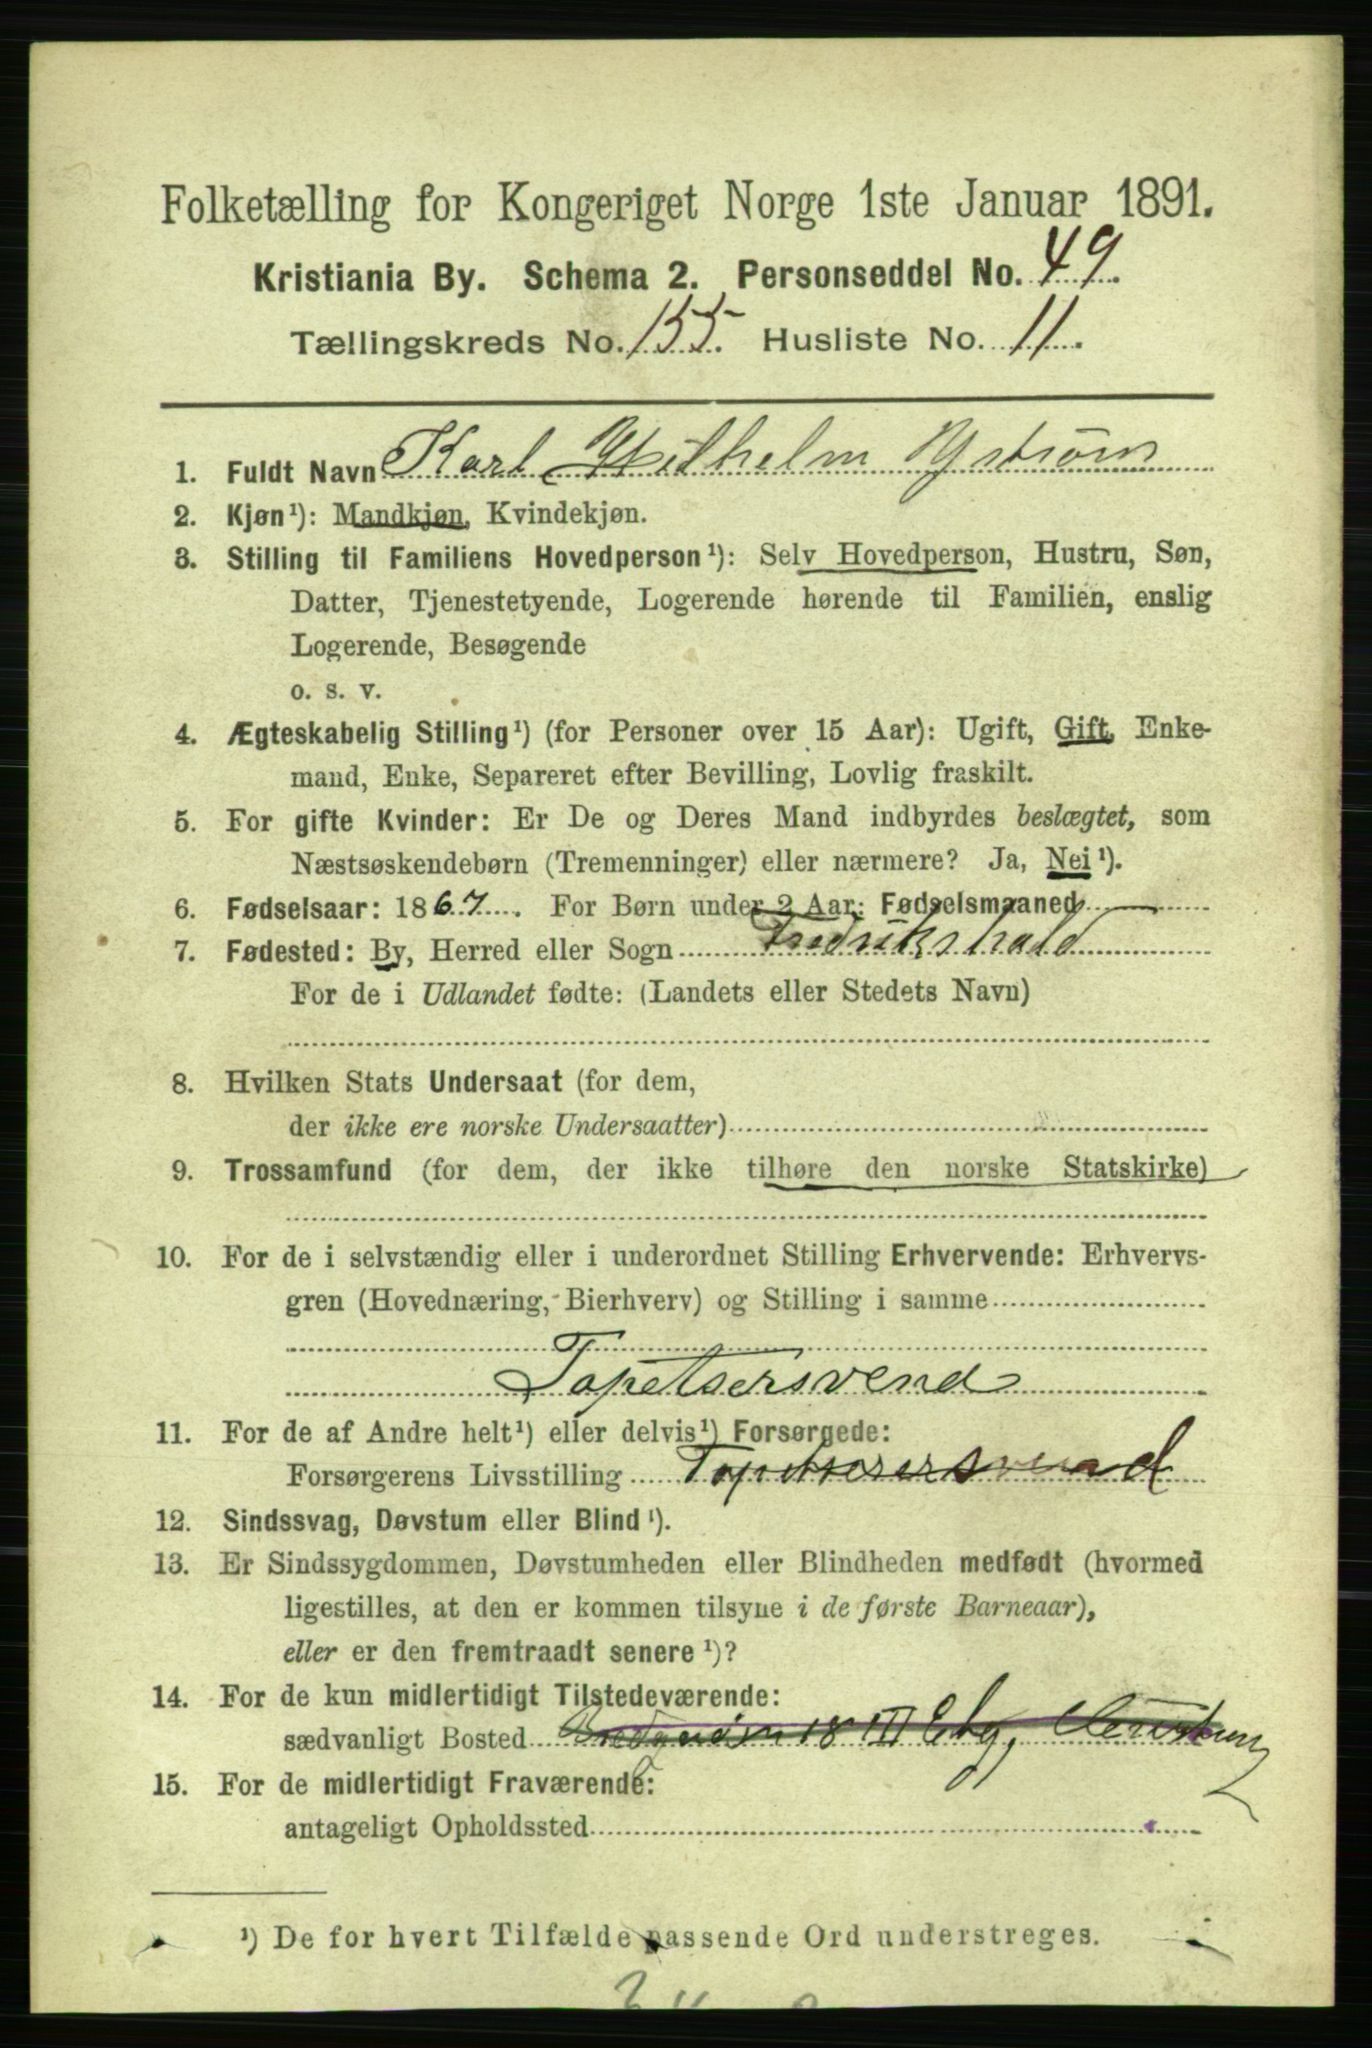 Folketælling for Kongeriget Norge 1ste Januar 1891.
Kristiania By. Schema 2. Personseddel No. 49.
Tællingskreds No. 155. Husliste No. 11.
1. Fuldt Navn Karl Wilhelm Ystrøm
2. Kjøn¹): Mandkjøn, Kvindekjøn.
3. Stilling til Familiens Hovedperson¹): Selv Hovedperson, Hustru, Søn,
Datter, Tjenestetyende, Logerende hørende til Familien, enslig
Logerende, Besøgende
o. s. v.
4. Ægteskabelig Stilling¹) (for Personer over 15 Aar): Ugift, Gift, Enke-
mand, Enke, Separeret efter Bevilling, Lovlig fraskilt.
5. For gifte Kvinder: Er De og Deres Mand indbyrdes beslægtet, som
Næstsøskendebørn (Tremenninger) eller nærmere? Ja, Nei¹).
6. Fødselsaar: 1867. For Børn under 2 Aar: Fødselsmaaned
7. Fødested: By, Herred eller Sogn Fredrikshald
For de i Udlandet fødte: (Landets eller Stedets Navn)
8. Hvilken Stats Undersaat (for dem,
der ikke ere norske Undersaatter)
9. Trossamfund (for dem, der ikke tilhøre den norske Statskirke)
10. For de i selvstændig eller i underordnet Stilling Erhvervende: Erhvervs-
gren (Hovednæring, Bierhverv) og Stilling i samme
Tapetsersvend
11. For de af Andre helt¹) eller delvis¹) Forsørgede:
Forsørgerens Livsstilling Tapetserersvend
12. Sindssvag, Døvstum eller Blind¹).
13. Er Sindssygdommen, Døvstumheden eller Blindheden medfødt (hvormed
ligestilles, at den er kommen tilsyne i de første Barneaar),
eller er den fremtraadt senere¹)?
14. For de kun midlertidigt Tilstedeværende:
sædvanligt Bosted 18 III Etg,
15. For de midlertidigt Fraværende:
antageligt Opholdssted
¹) De for hvert Tilfælde passende Ord understreges.